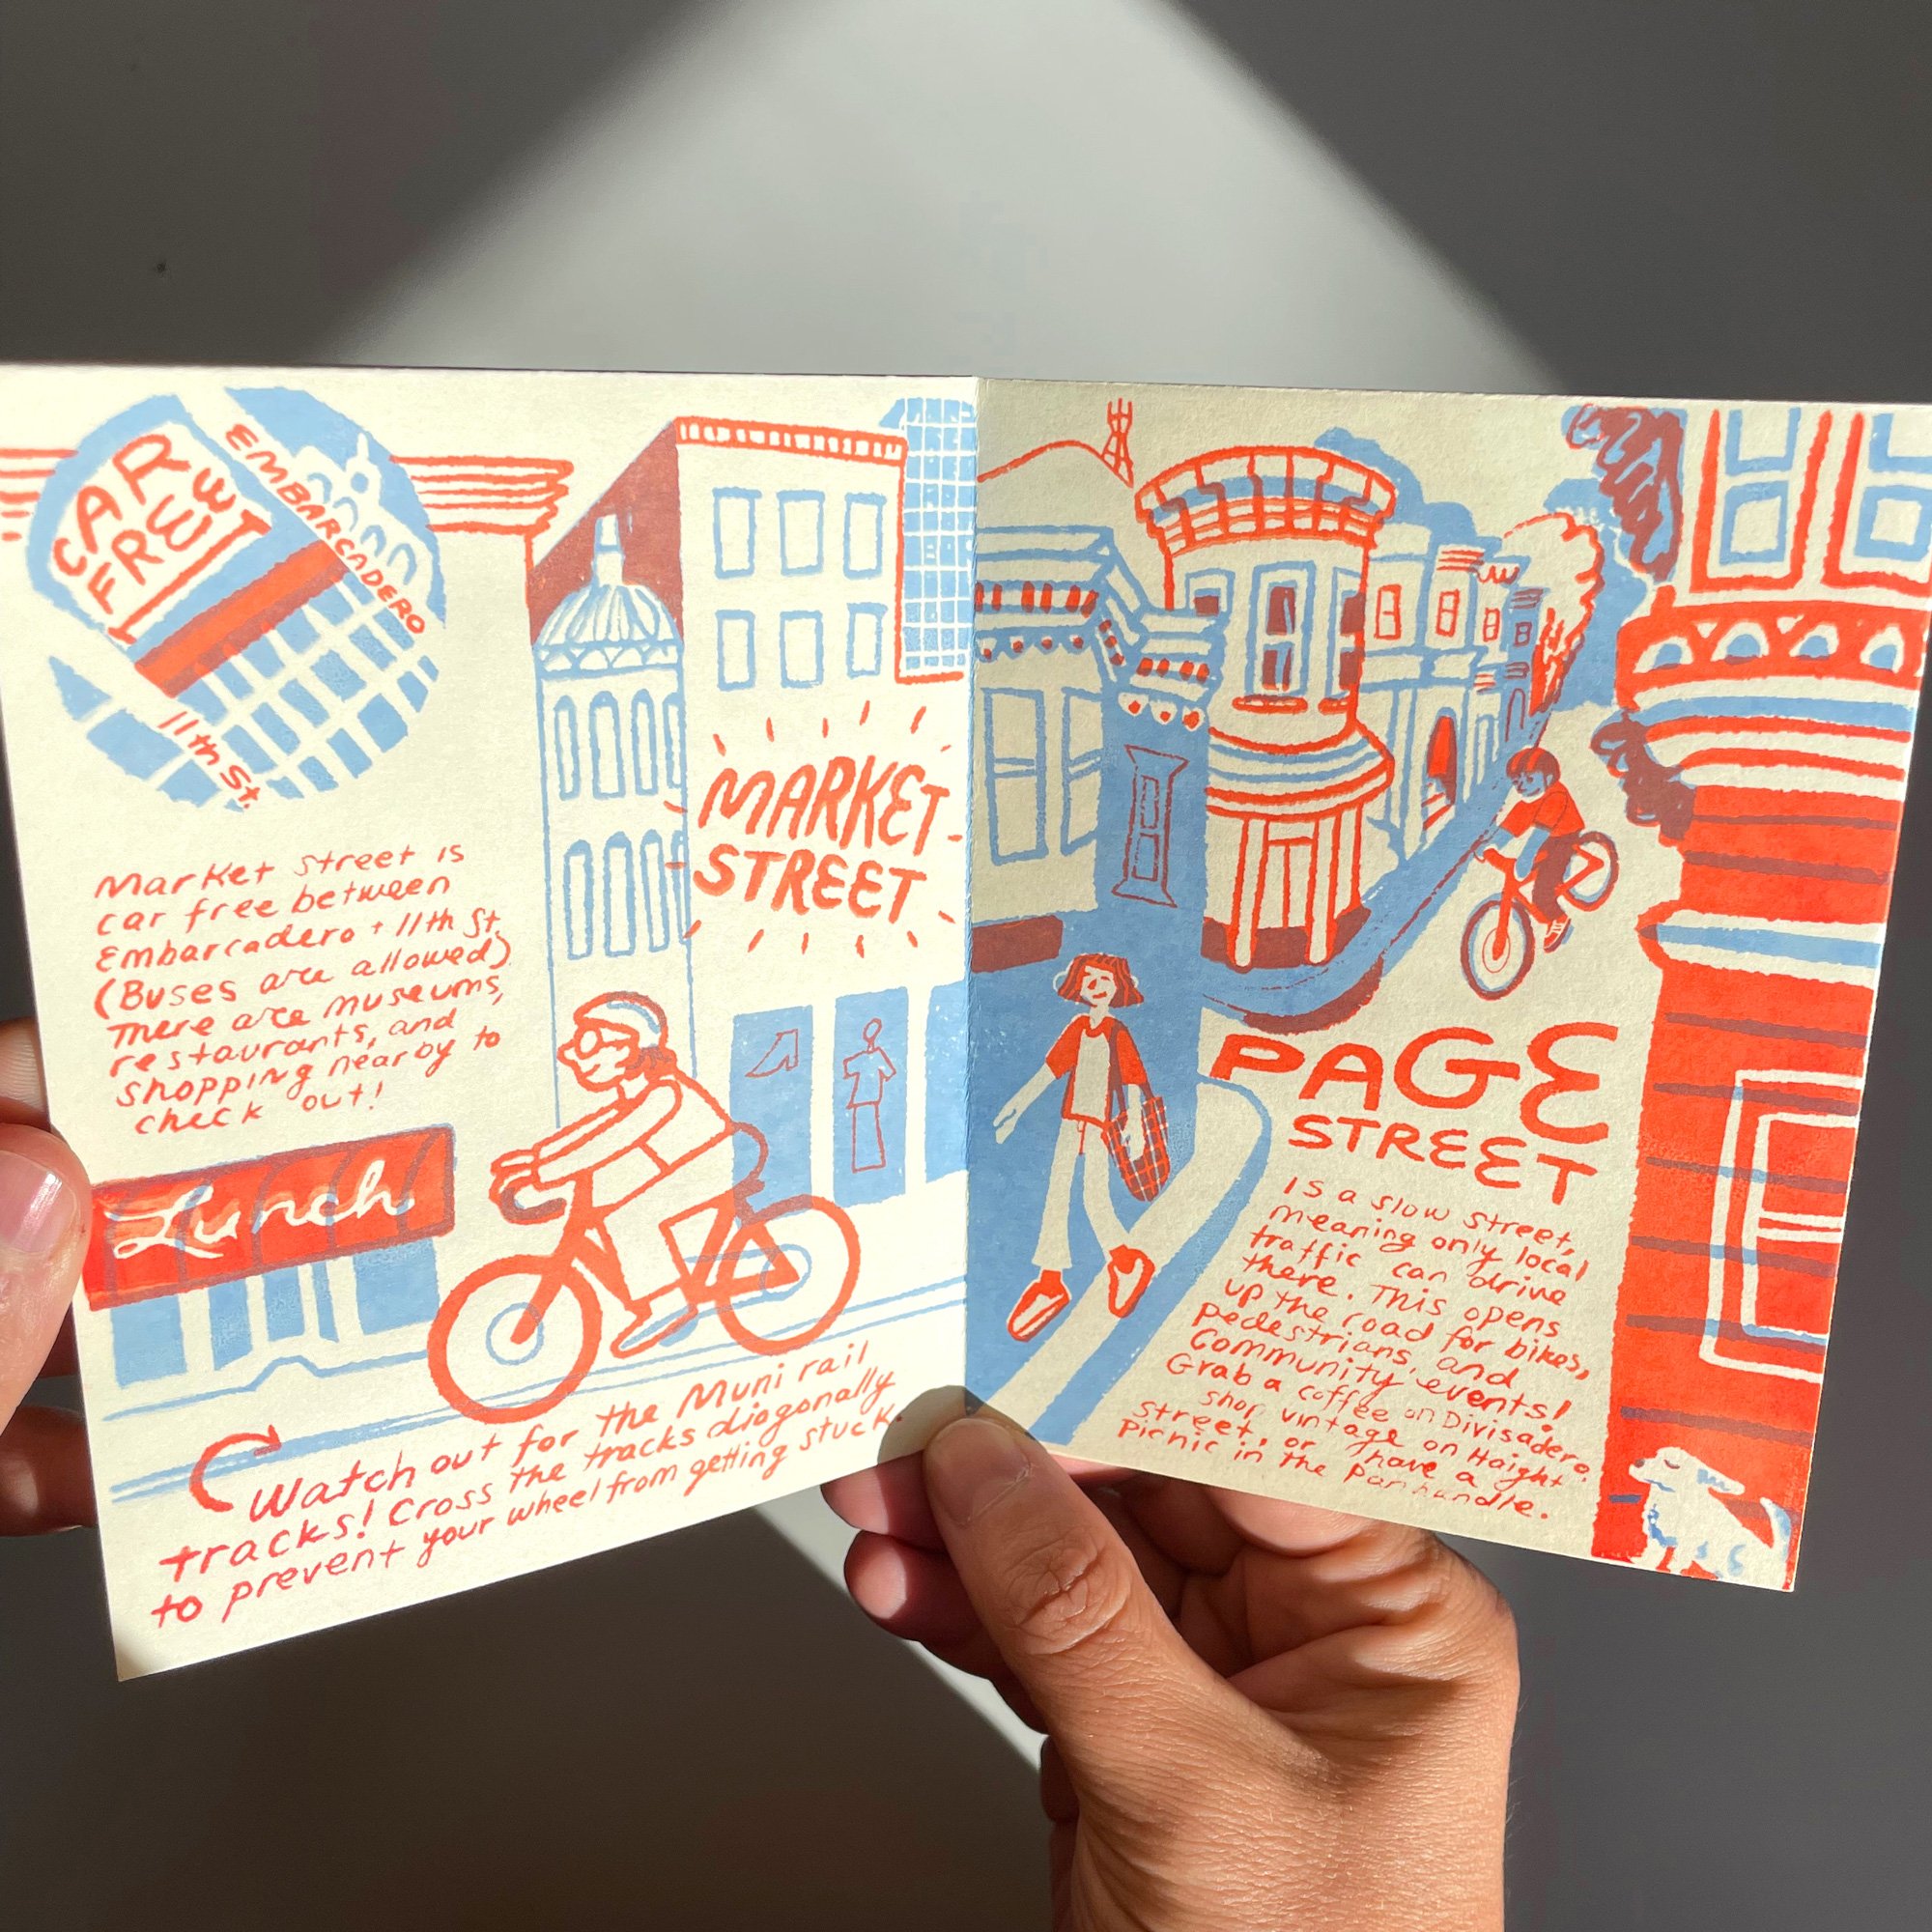 CAR
FREE
EMBARCADERO
11th St.
Market Street is
car free between
Embarcadero + 11th St.
(Buses are allowed)
There are museums,
restaurants, and
shopping nearby to
check out!
MARKET
STREET
Lunch
Watch out for the Muni rail
tracks! Cross the tracks diagonally
to prevent your wheel from getting stuck.
PAGE
STREET
Is a slow street,
meaning only local
traffic can drive
there. This opens
up the road for bikes,
pedestrians, and
Community events!
Grab a coffee on Divisadero,
shop vintage on Haight
Street, or have a
Picnic in the Panhandle.